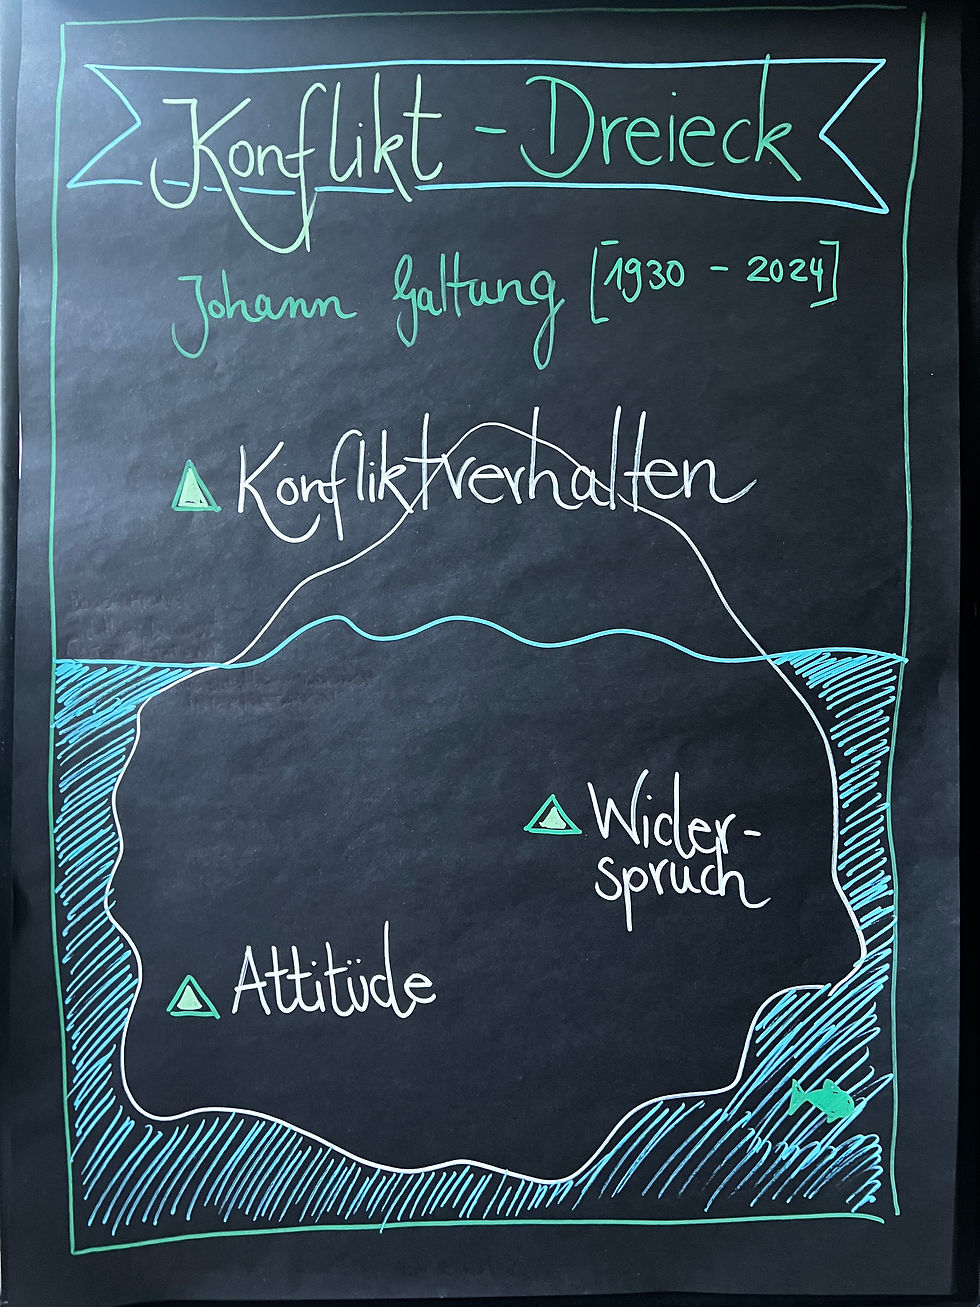 Konflikt - Dreieck
Johann Galtung [1930 - 2024]
Konfliktverhalten
Wider-
spruch
Attitüde